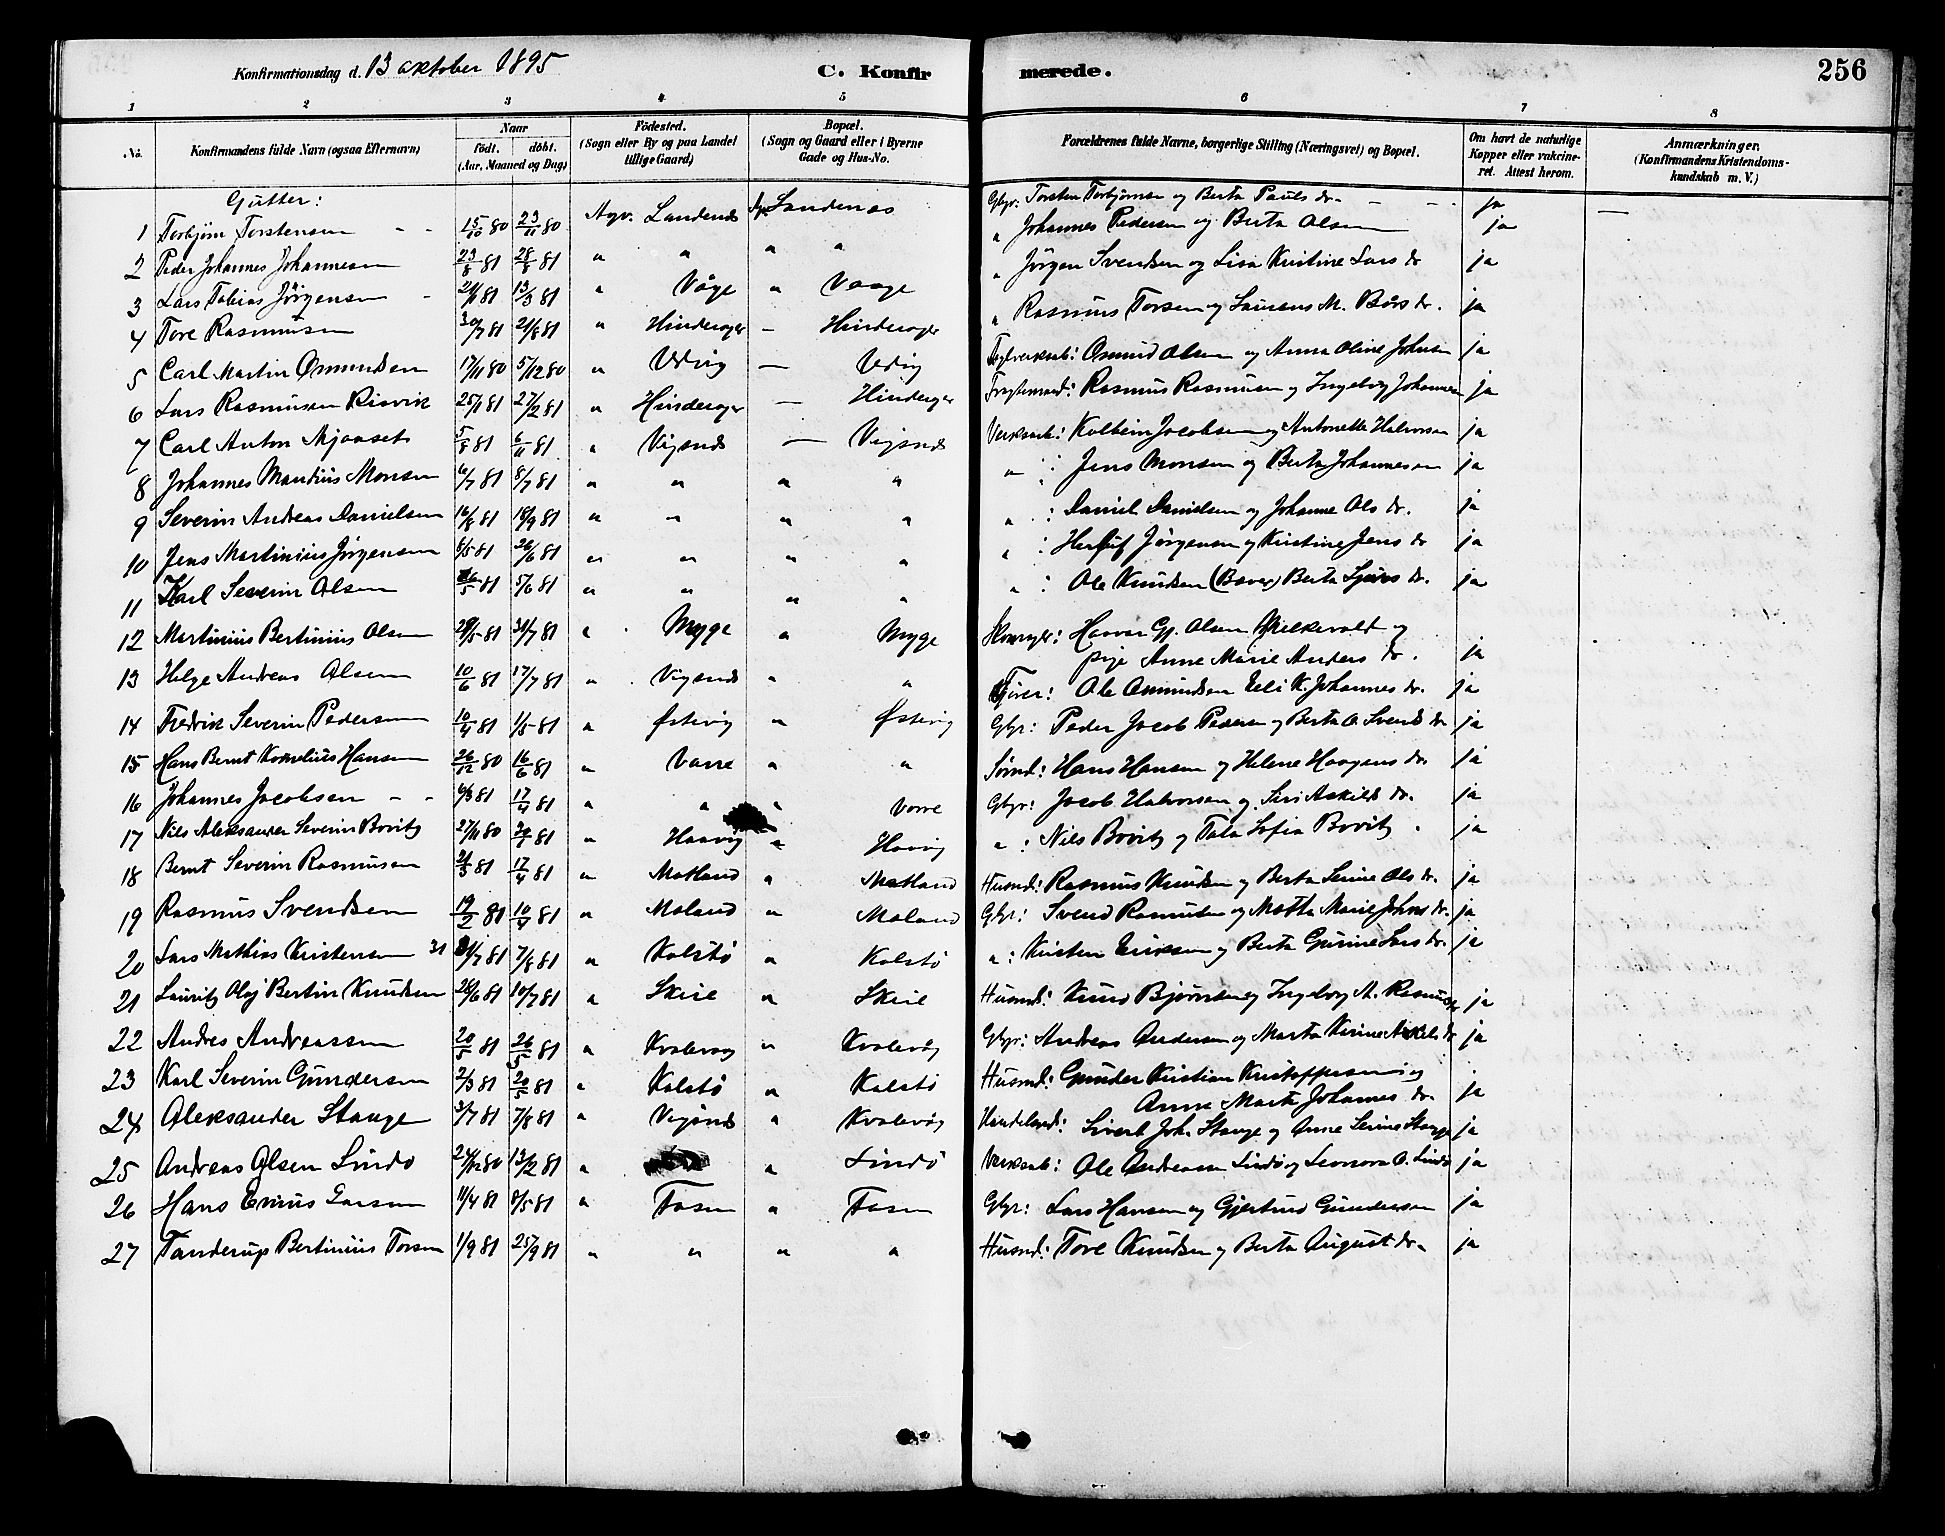 Konfirmationsdag d. 13 oktober 1895 C. Konfirmerede. 256
1 2 3 4 5 6 7 8
No. Konfirmandens fulde Navn (ogsaa Efternavn) Naar födt. döbt. (Aar, Maaned og Dag) Födested. (Sogn eller By og paa Landet tillige Gaard) Bopæl. (Sogn og Gaard eller i Byerne Gade og Hus-No. Forældrenes fulde Navne, borgerlige Stilling (Næringsvei) og Bopæl. Om havt de naturlige Kopper eller vakcineret. Attest herom. Anmærkninger. (Konfirmandens Kristendomskundskab m. V.)
Gutter:
1 Torbjörn Torstensen 15/10 80 23/11 80 Agv. Sandenes Agv. Sandenes Gbgr: Torsten Torbjörnsen og Berta Pauls dr. ja
2 Peder Johannes Johannesen 23/8 81 28/8 81 " " " " " Johannes Pedersen og Berta Olsen ja
3 Lars Tobias Jörgensen 81 13/3 81 " Våge " Vaage " Jörgen Svendsen og Lisa Kristine Lars dr ja
4 Tore Rasmussen 30/7 81 21/8 81 " Hinderager — Hinderager " Rasmus Torsen og Laurens M. Bårs dr. ja
5 Carl Martin Osmundsen 17/11 80 5/12 80 " Udvig — Udvig Osmund Olsen og Anna Oline Johnsen ja
6 Lars Rasmusen Risvik 25/1 81 27/2 81 " Hinderager — Hinderager Fragtemand: Rasmus Rasmusen og Ingeborg Johannesen ja
7 Carl Anton Mjaaset 5/8 81 6/11 81 " Vigsnes — Vigsnes Verksarb: Kolbein Jacobsen og Antonette Halvorsen ja
8 Johannes Mandius Monsen 6/7 81 8/7 81 " " " " " : Jens Monsen og Berta Johannesen ja
9 Severin Andreas Danielsen 16/8 81 18/9 81 " " " " " : Daniel Danielsen og Johanne Ols dr. ja
10 Jens Martinius Jörgensen 8/5 81 26/6 81 " " " " " : Jörgensen og Kristine Jens dr ja
11 Karl Severin Olsen 26/5 81 5/6 81 " " " " " : Ole Knudsen (Bover) Berta Sjurs dr. ja
12 Martinius Bertinius Olsen 29/5 81 31/7 81 " Mygge " Mygge Skomager: Haavar Gj. Olsen Melkevold og
pige Anne Marie Anders dr. ja
13 Helge Andreas Olsen 10/6 81 17/7 81 " Vigsnes " " Ole Osmundsen Eeli K. Johannes dr. ja
14 Fredrik Severin Pedersen 10/4 81 1/5 81 " Østevig " Østevig Gbgr: Peder Jacob Pedersen og Berta O. Svends dr ja
15 Hans Bernt Kornelius Hansen 26/12 80 16/6 81 " Varre " " Sömd: Hans Hansen og Helene Haagens dr ja
16 Johannes Jacobsen 4/3 81 17/4 81 " " " Vorre Gbgr: Jacob Halvorsen og Siri Askilds dr. ja
17 Nils Aleksander Severin Bovitz 27/11 80 30/1 81 " Haavig " Haavig " : Nils Bovitz og Tala Sofia Bovitz ja
18 Bernt Severin Rasmusen 21/3 81 17/4 81 " Matland " Matland Husmd: Rasmus Knudsen og Berta Serine Ols dr. ja
19 Rasmus Svendsen 19/2 81 10/4 81 " Maland " Maland Gbr: Svend Rasmusen og Matta Marie Johns dr. ja
20 Lars Mathias Kristensen 31 31/7 81 7/8 81 " Kolstö " Kolstö " : Kristen Eriksen og Berta Gurine Lars dr. ja
21 Lauritz Olaj Bertin Knudsen 28/6 81 10/7 81 " Skeie " Skeie Husmd: Knud Björnsen og Ingeborg A. Rasmus dr ja
22 Andres Andreassen 20/5 81 26/5 81 " Kvalevag " Kvalevåg Gbgr: Andreas Andersen og Marta Karine Askils dr ja
23 Karl Severin Gundersen 2/3 81 20/5 81 " Kolstö " Kolstö Husmd: Gunder Kristian Kristoffersen og
Anne Marta Johannes dr. ja
24 Aleksander Stange 3/7 81 7/8 81 " Vigsnes " Kvalevåg Handelsmd: Sivert Joh. Stange og Anne Serine Stange ja
25 Andreas Olsen Lindö 24/12 80 13/2 81 " " Lindö Verksarb: Ole Andreasen Lindö og Leonora O. Lindö ja
26 Hans Enius Larsen 11/4 81 8/5 81 " Fosen " Fosen Gbgr: Lars Hansen og Gjertrud Gundersen ja
27 Tanderup Bertinius Torsen 1/9 81 25/9 81 " " " " Husmd: Tore Knudsen og Berta August dr. ja